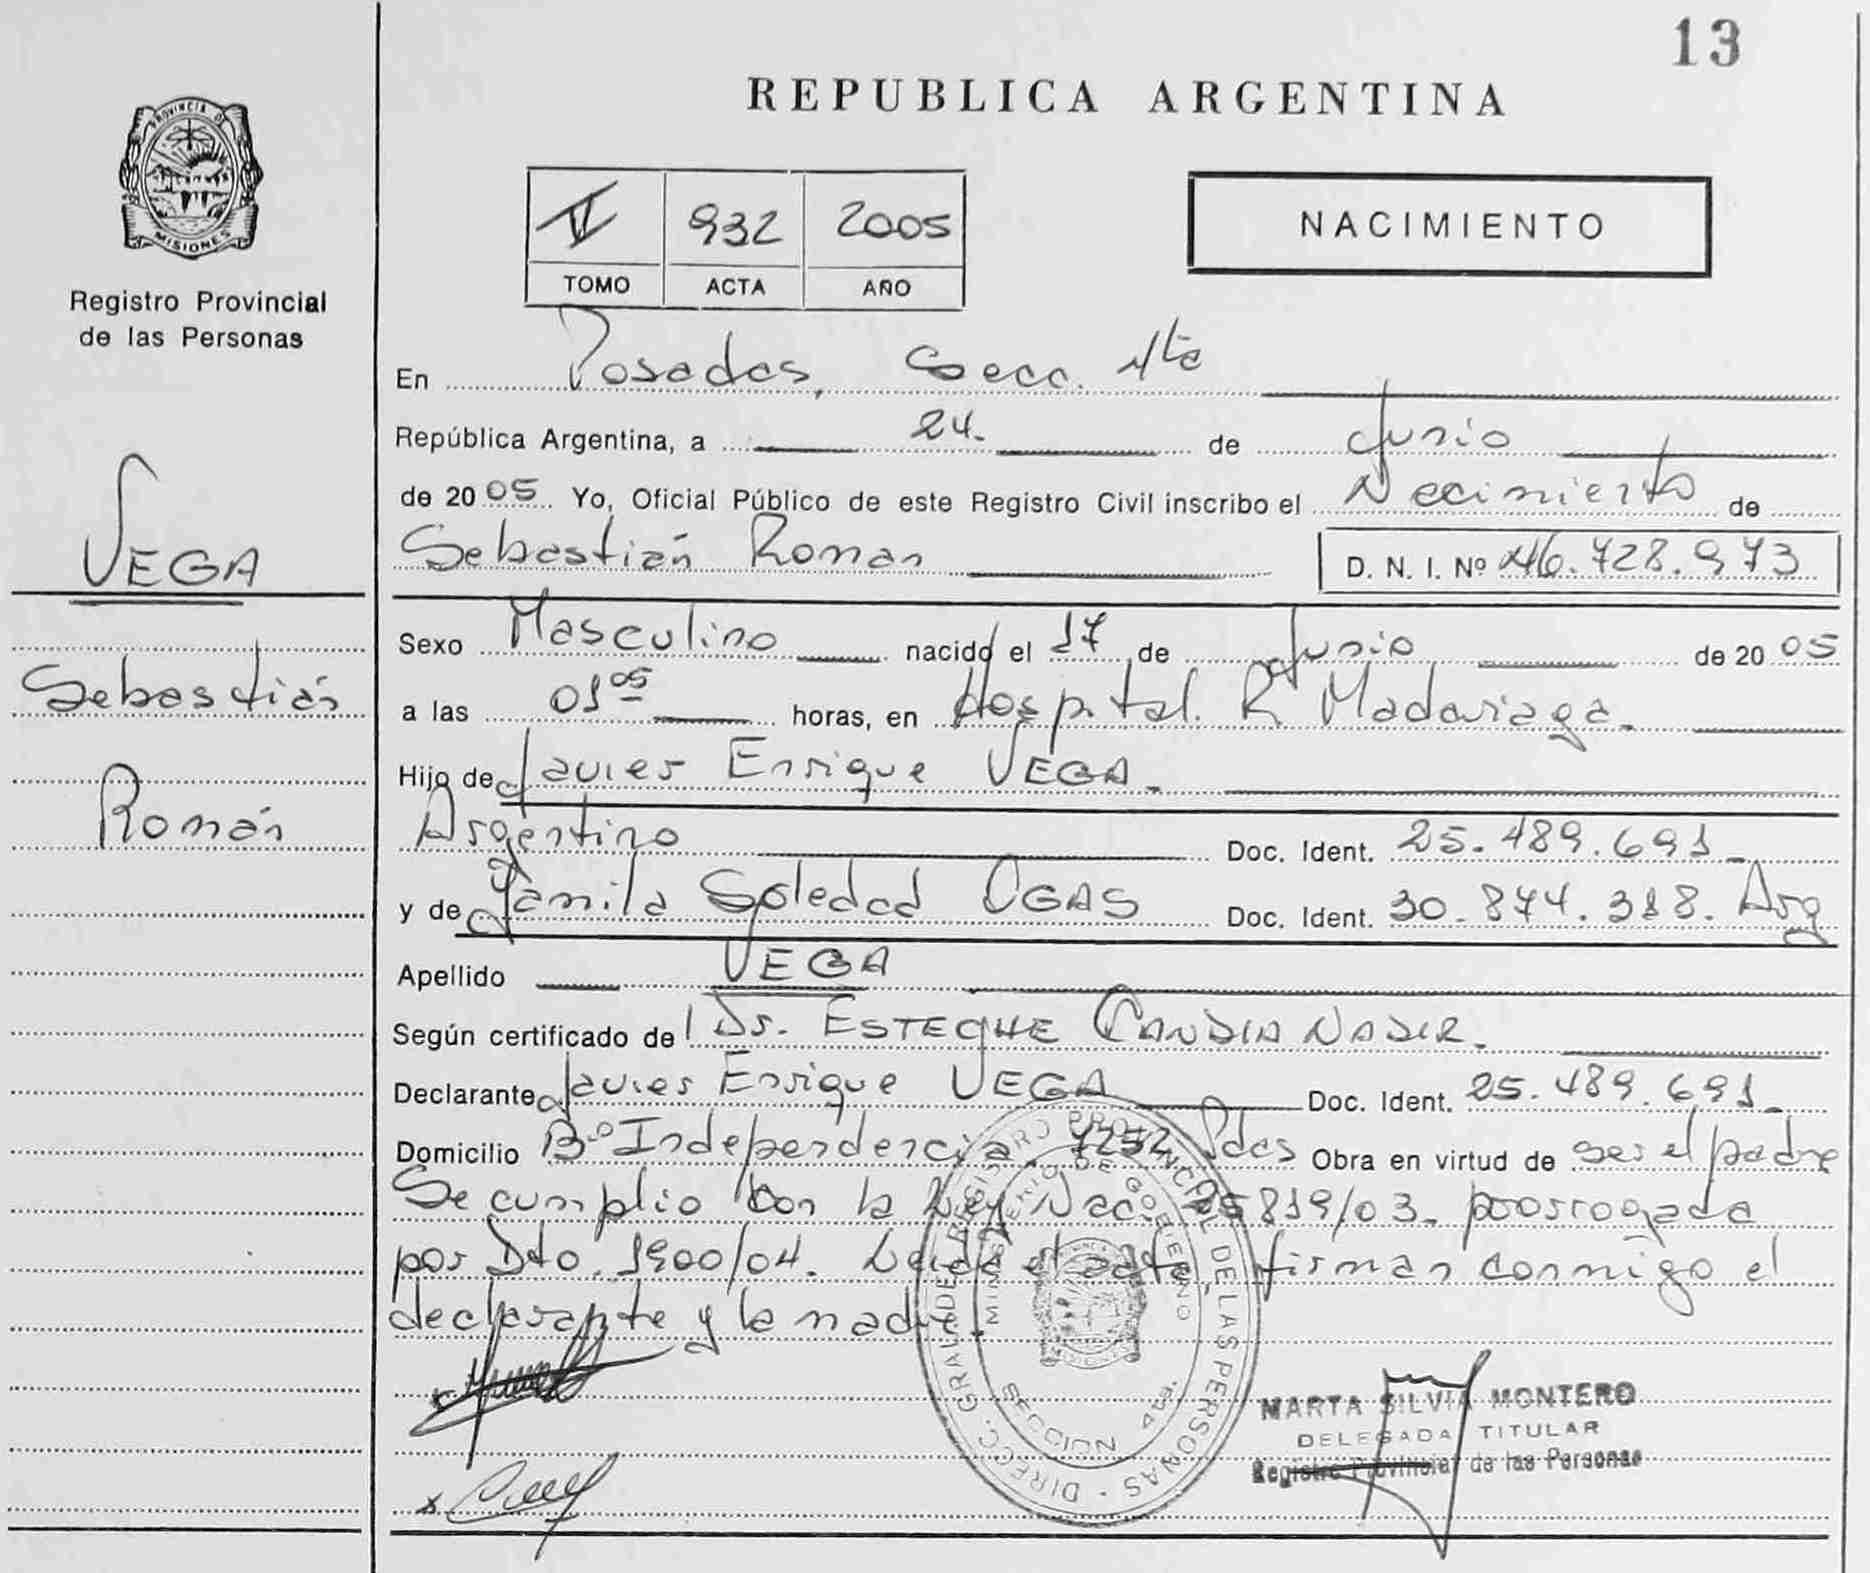 13
REPUBLICA ARGENTINA
PROVINCIA DE
MISIONES
Registro Provincial
de las Personas
932 2005
TOMO ACTA AÑO
NACIMIENTO
VEGA
Sebastián
Román
En Posadas, Secc. 4ta
República Argentina, a 24. de Junio
de 2005 Yo, Oficial Público de este Registro Civil inscribo el Nacimiento de
Sebastián Roman D. N. I. Nº 46.728.973
Sexo Masculino nacido el 17 de Junio de 2005
a las 01 05 horas, en Hospital. R Madariaga.
Hijo de Javier Enrique VEGA.
Argentino Doc. Ident. 25.489.691
y de Yamila Soledad OGAS Doc. Ident. 30.874.318. Arg
Apellido VEGA
Según certificado de Dr. ESTECHE CANDIA NADIR.
Declarante Javier Enrique VEGA Doc. Ident. 25.489.691
Domicilio Bº Independencia 7252 Pdas Obra en virtud de ser el padre
Se cumplio con la Ley Nac. 25819/03. prorrogada
por Dto. 1900/04. Leida el acta, firman conmigo el
declarante y la madre.
DIRECC. GRAL. DE REGISTRO PROVINCIAL DE LAS PERSONAS
MINISTERIO DE GOBIERNO
SECCION 4ta.
MARTA SILVIA MONTERO
DELEGADA TITULAR
Registro Provincial de las Personas